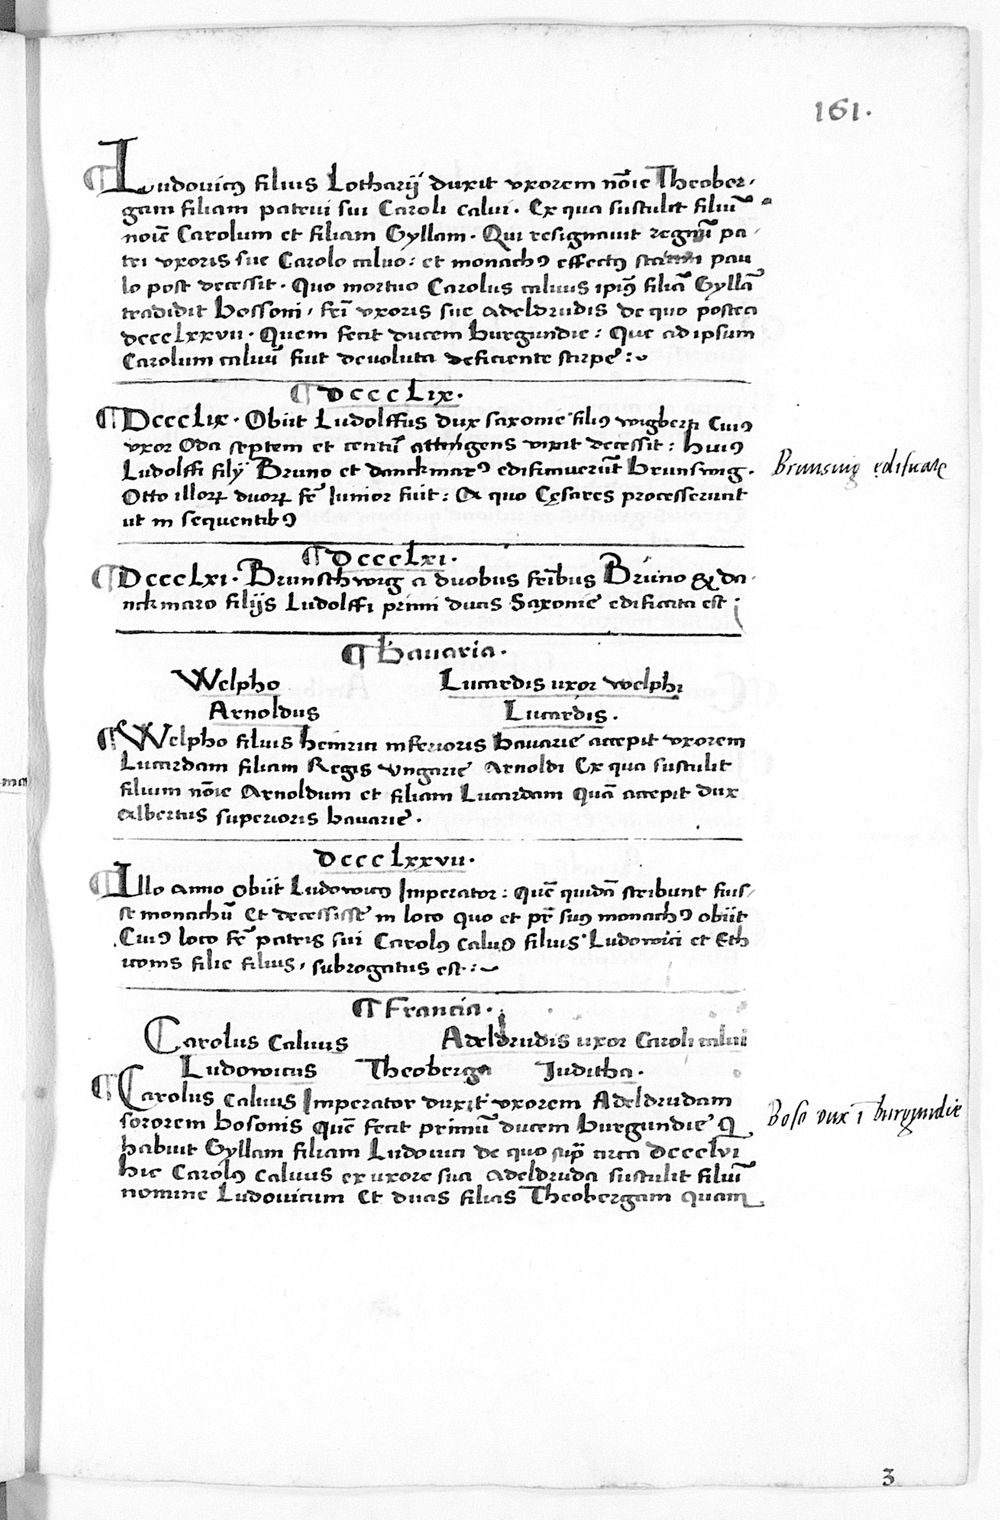 161.
¶ Ludouicꝰ filius Lotharij duxit vxorem nōie Theober-
gam filiam patrui sui Caroli calui. Ex qua sustulit filiū
noiē Carolum et filiam Gyllam. Qui resignauit regnū pa-
tri vxoris sue Carolo caluo: et monachꝰ effectꝰ statim pau
lo post decessit. Quo mortuo Carolus caluus ipiꝰ filiā Gyllā
tradidit bossoni, frī vxoris sue adeldrudis de quo postea
dccclxxvii. Quem fecit ducem burgundie: Que ad ipsum
Carolum caluū fuit deuoluta deficiente stirpe:~
¶ DcccLix.
¶ DcccLix. Obiit Ludolffus dux saxonie filiꝰ wigberti Cuiꝰ
vxor Oda septem et centū attingens vixit decessit: huiꝰ
Ludolffi filij Bruno et danckmarꝰ edificauerūt brunswig.
Otto illoꝝ duoꝝ fr̄ Iunior fuit: A quo Cęsares processerunt
ut in sequentibꝰ
Brunswig edificate
¶ DcccLxi.
¶ DcccLxi. Brunschwig a duobus frībus Bruno & da-
nckmaro filijs Ludolffi primi ducis Saxonie edificata est:
¶ bauaria.
Welpho Lucardis uxor welphi
Arnoldus Lucardis.
¶ Welpho filius heinrici inferioris bauarie accepit vxorem
Lucardam filiam Regis vngarie Arnoldi Ex qua sustulit
filium nōie Arnoldum et filiam Lucardam Quā accepit dux
albertus superioris bauarie.
DcccLxxvii.
¶ Illo anno obiit Ludowicꝰ Imperator: Quē quidā scribunt fuis-
se monachū Et decessisse in loco quo et pr̄ suꝰ monachꝰ obiit
Cuiꝰ loco fr̄ patris sui Carolꝰ caluꝰ filius Ludowici et Eth
icoms filie filius, subrogatus est:~
¶ Francia.
Carolus caluus Adeldrudis uxor Caroli calui
Ludowicus Theoberga Juditha.
¶ Carolus caluus Imperator duxit vxorem Adeldrudam
sororem bosonis Quē fecit primū ducem burgundie Q
habuit Gyllam filiam Ludouici de quo sup̄ circa dccclvi
hic Carolꝰ caluus ex uxore sua adeldruda sustulit filiū
nomine Ludouicum Et duas filias Theobergam quam
Boso dux ī burgundie
3